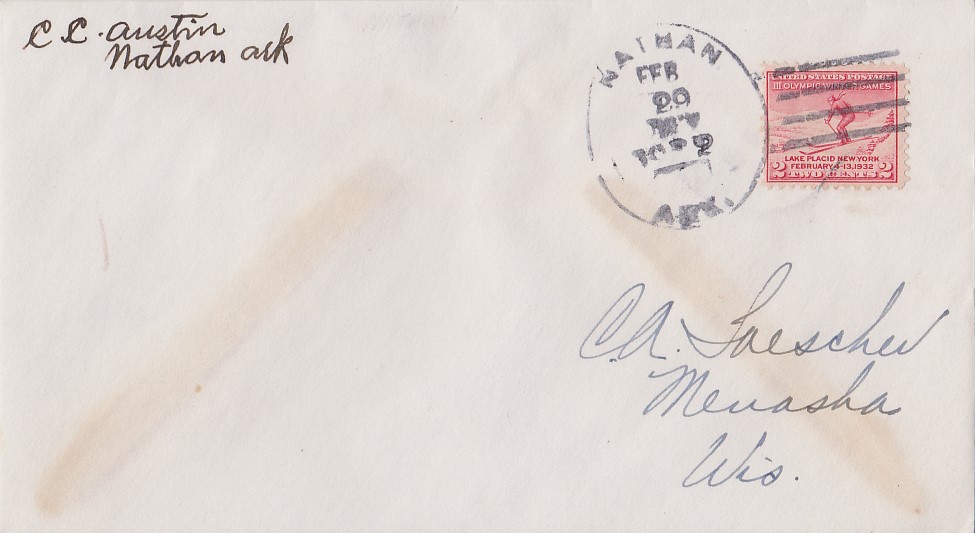 C C. Austin
Nathan Ark
NATHAN
FEB
ARK.
UNITED STATES POSTAGE
III OLYMPIC WINTER GAMES
LAKE PLACID NEW YORK
FEBRUARY 4-13, 1932
2 TWO CENTS 2
C. A. Loescher
Menasha
Wis.